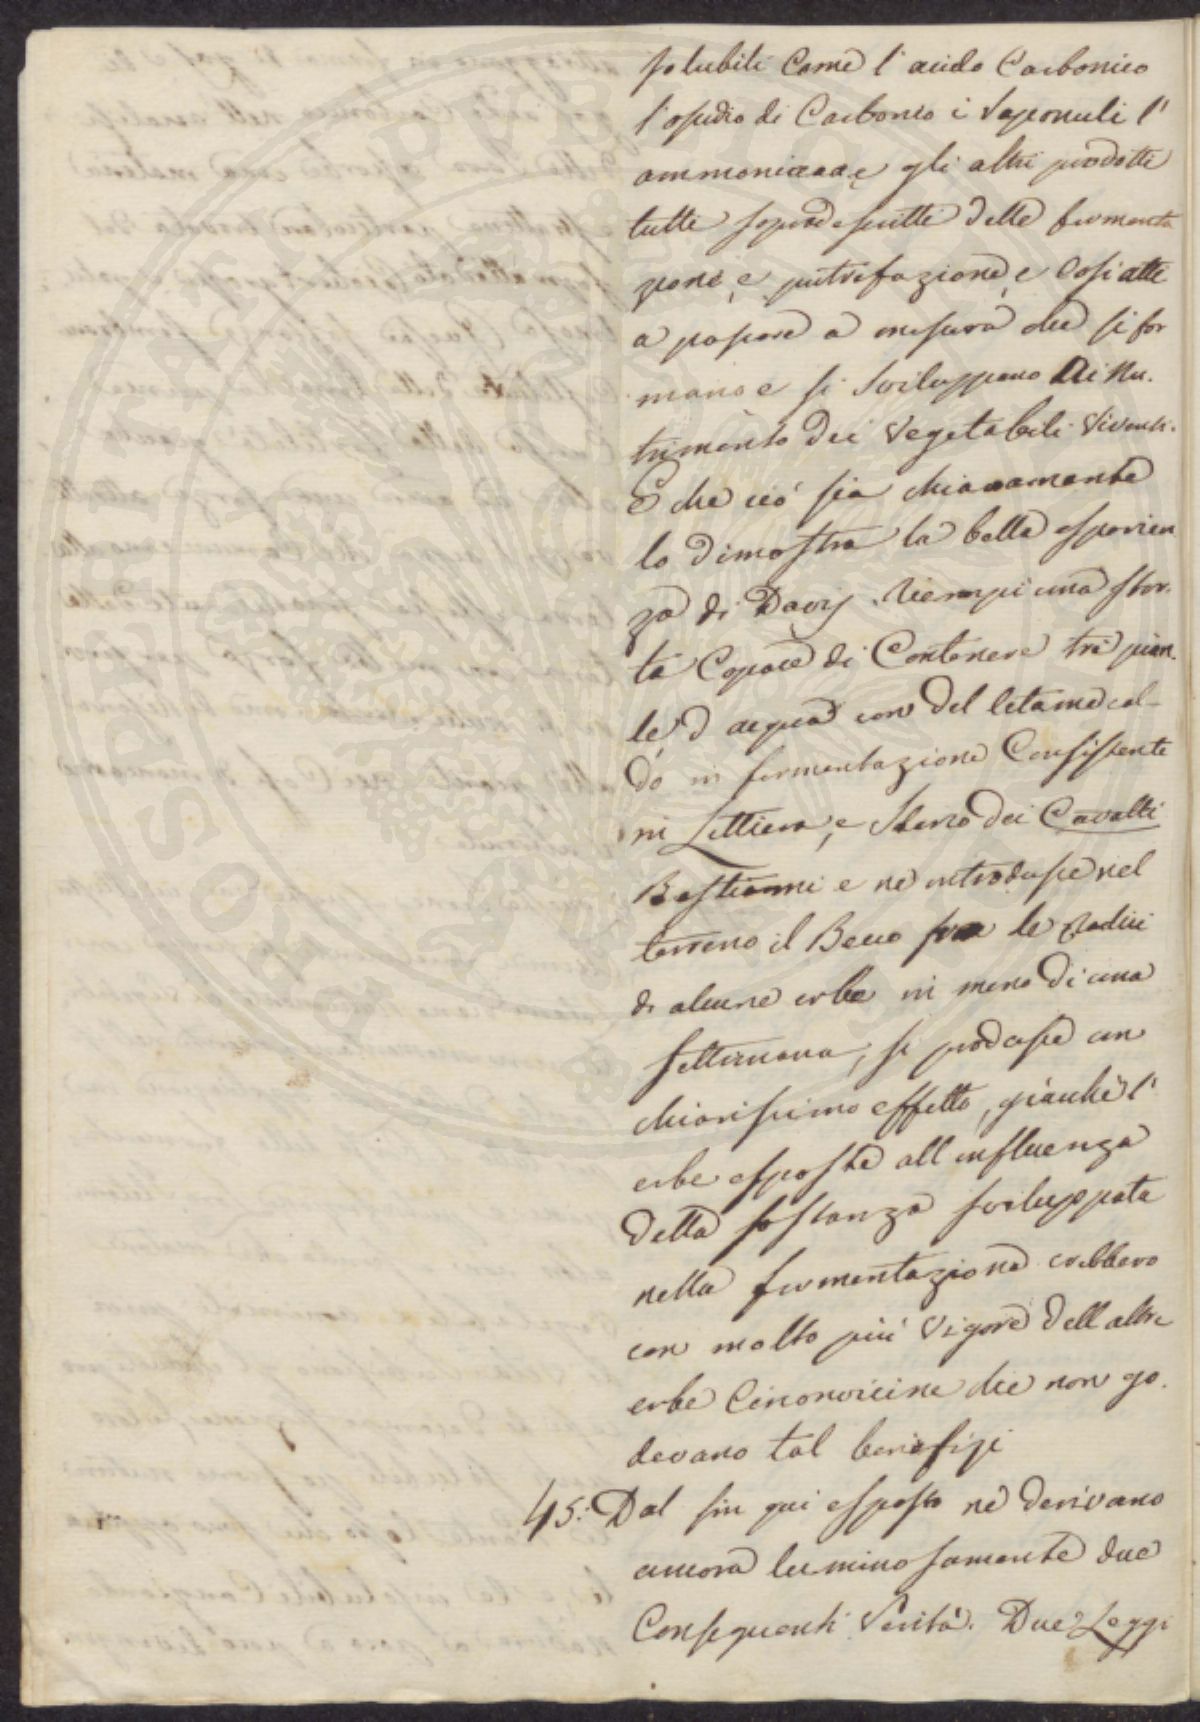 solubili come l'acido Carbonico
l'ossidio di Carbonio i Saponuli l'
ammoniaca e gli altri prodotti
tutte delle fermenta
zione, e putrefazione, e Cosi atte
a passare a misura che si for
mano e si sviluppano Al Nu.
trimento dei Vegetabili Viventi.
E che ció sia chiaramente
lo dimostra la bella esperien
za di Davy. Riempi una stor.
ta Capace di Contenere tre pien.
te d'acqua con del letame cal-
do in fermentazione Consistente
in Lettiera, e Sterco dei Cavalli
Bestiami e ne introdusse nel
terreno il Becco fra le Radici
di alcune erbe in meno di una
settimana, si produsse un
chiarissimo effetto, giacchè l'
erbe esposte all influenza
della sostanza sviluppata
nella fermentazione crebbero
con molto piú Vigore dell altre
erbe Circonvicine che non go.
devano tal benefizi
45. Dal sin qui esposto ne derivano
ancora luminosamente due
Conseguenti Verità. Due Leggi